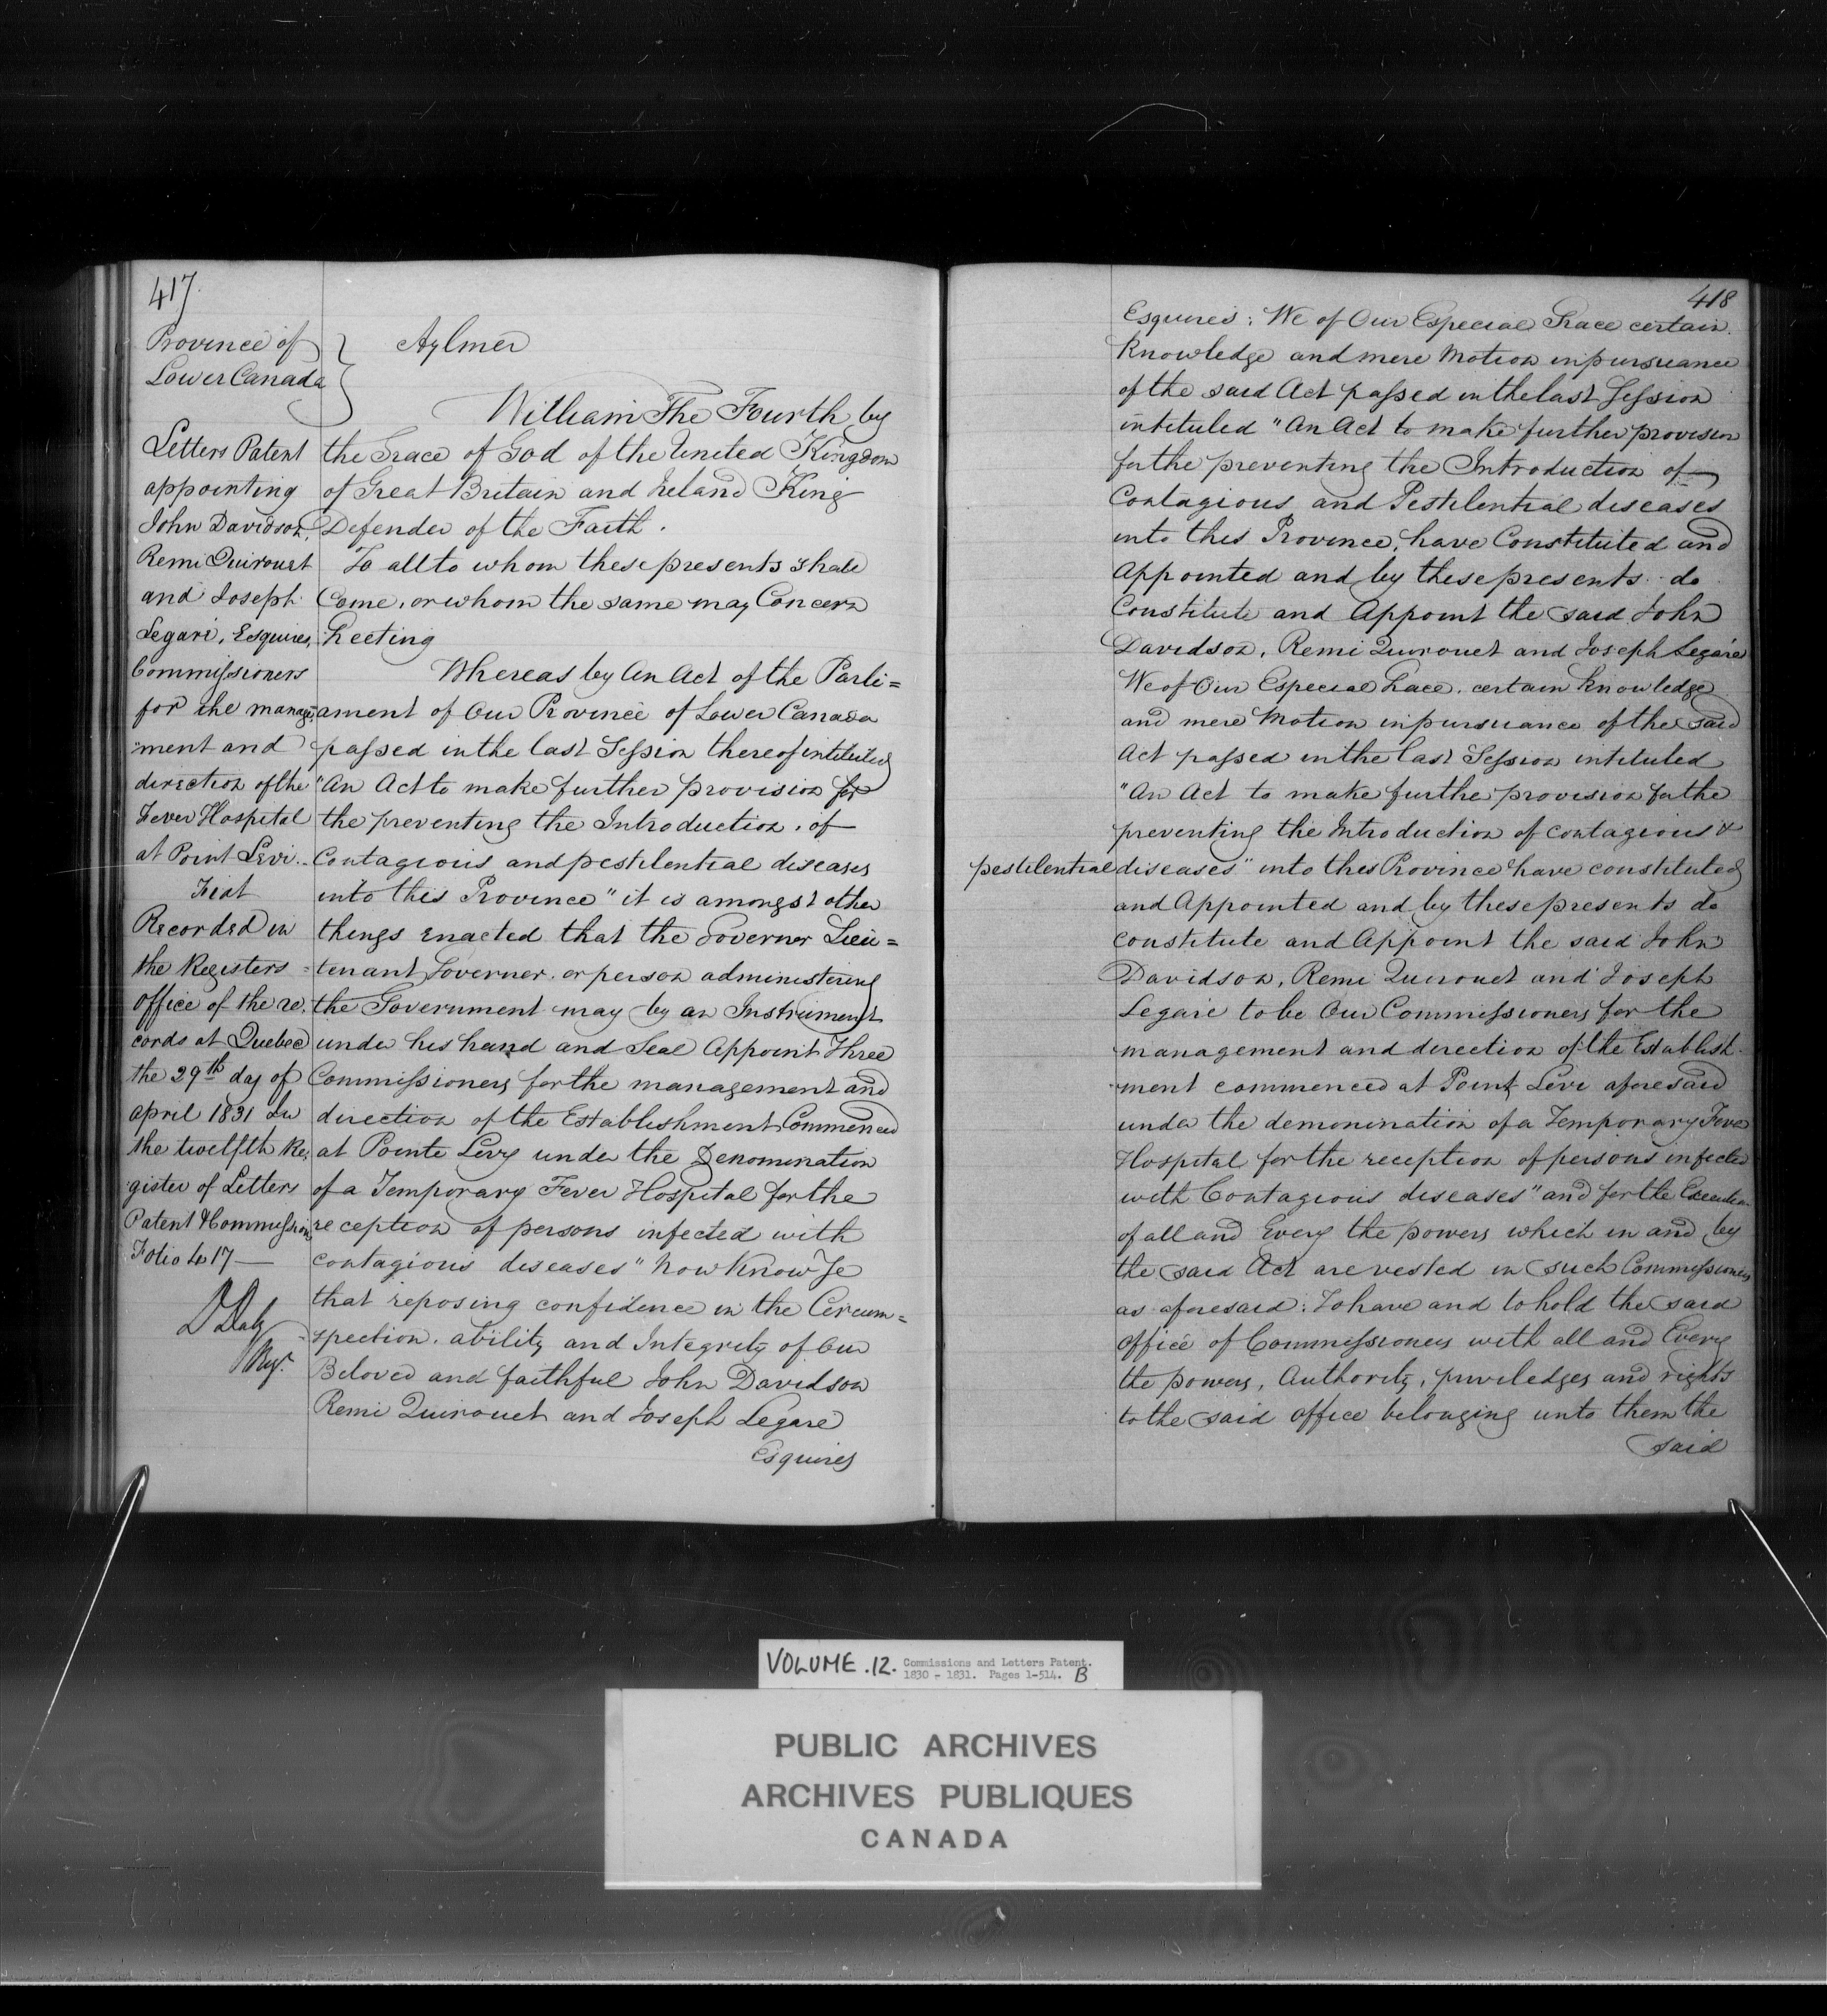 417.
Province of
Lower Canada
Aylmer
Letters Patent
appointing
John Davidson,
Remi Quirouet
and Joseph
Legaré, Esquires,
Commissioners
for the manage-
"ment and
direction of the
Fever Hospital
at Point Levi.
Fiat
Recorded in
the Registers
office of the re-
cords at Quebec
the 29th day of
april 1831 In
the twelfth Re-
gister of Letters
Patent & Commissions
Folio 417 —
D Daly
Regr.
William The Fourth by
the Grace of God of the United Kingdom
of Great Britain and Ireland King
Defender of the Faith.
To all to whom these presents shall
Come, or whom the same may Concern
Greeting
Whereas by An Act of the Parli=
ament of Our Province of Lower Canada
passed in the last Session thereof intituled
"An Act to make further provision for
the preventing the Introduction of
Contagious and pestilential diseases
into this Province" it is amongst other
things enacted that the Governor Lieu=
=tenant Governer or person administering
the Government may by an Instrument
under his hand and Seal Appoint Three
Commissioners for the management and
direction of the Establishment Commenced
at Pointe Levy under the Denomination
of a Temporary Fever Hospital for the
reception of persons infected with
contagious diseases" Now Know Ye
that reposing confidence in the Circum=
=spection, ability and Integrity of Our
Beloved and faithful John Davidson
Remi Quirouet and Joseph Legaré
Esquires
418
Esquires: We of Our Especial Grace certain
Knowledge and mere Motion in pursuance
of the said Act passed in the last Session
intituled "An Act to make further provision
for the preventing the Introduction of
Contagious and Pestilential diseases
into this Province, have Constituted and
Appointed and by these presents do
Constitute and Appoint the said John
Davidson, Remi Quirouet and Joseph Legaré
We of Our Especial Grace, certain Knowledge
and mere Motion in pursuance of the said
Act passed in the last Session intituled
"An Act to make further provision for the
preventing the Introduction of contagious &
pestilential diseases" into this Province have constituted
and Appointed and by these presents do
constitute and Appoint the said John
Davidson, Remi Quirouet and Joseph
Legaré to be Our Commissioners for the
management and direction of the Establish-
ment commenced at Point Levi aforesaid
under the demonination of a Temporary Fever
Hospital for the reception of persons infected
with Contagious diseases" and for the Execution
of all and Every the powers which in and by
the said Act are vested in such Commissioners
as aforesaid: To have and to hold the said
office of Commissioners with all and Every
the powers, Authority, priviledges and rights
to the said office belonging unto them the
said
VOLUME .12. Commissions and Letters Patent.
1830 - 1831. Pages 1-514. B
PUBLIC ARCHIVES
ARCHIVES PUBLIQUES
CANADA